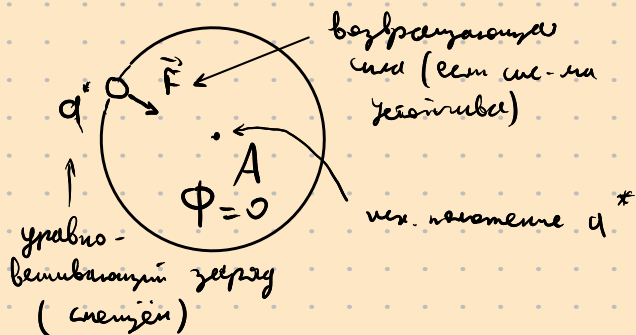 возвращающая
сила (если сис-ма
устойчива)
q*
F
A
Ф = 0
исх. положение q*
уравно-
вешивающий заряд
(смещён)